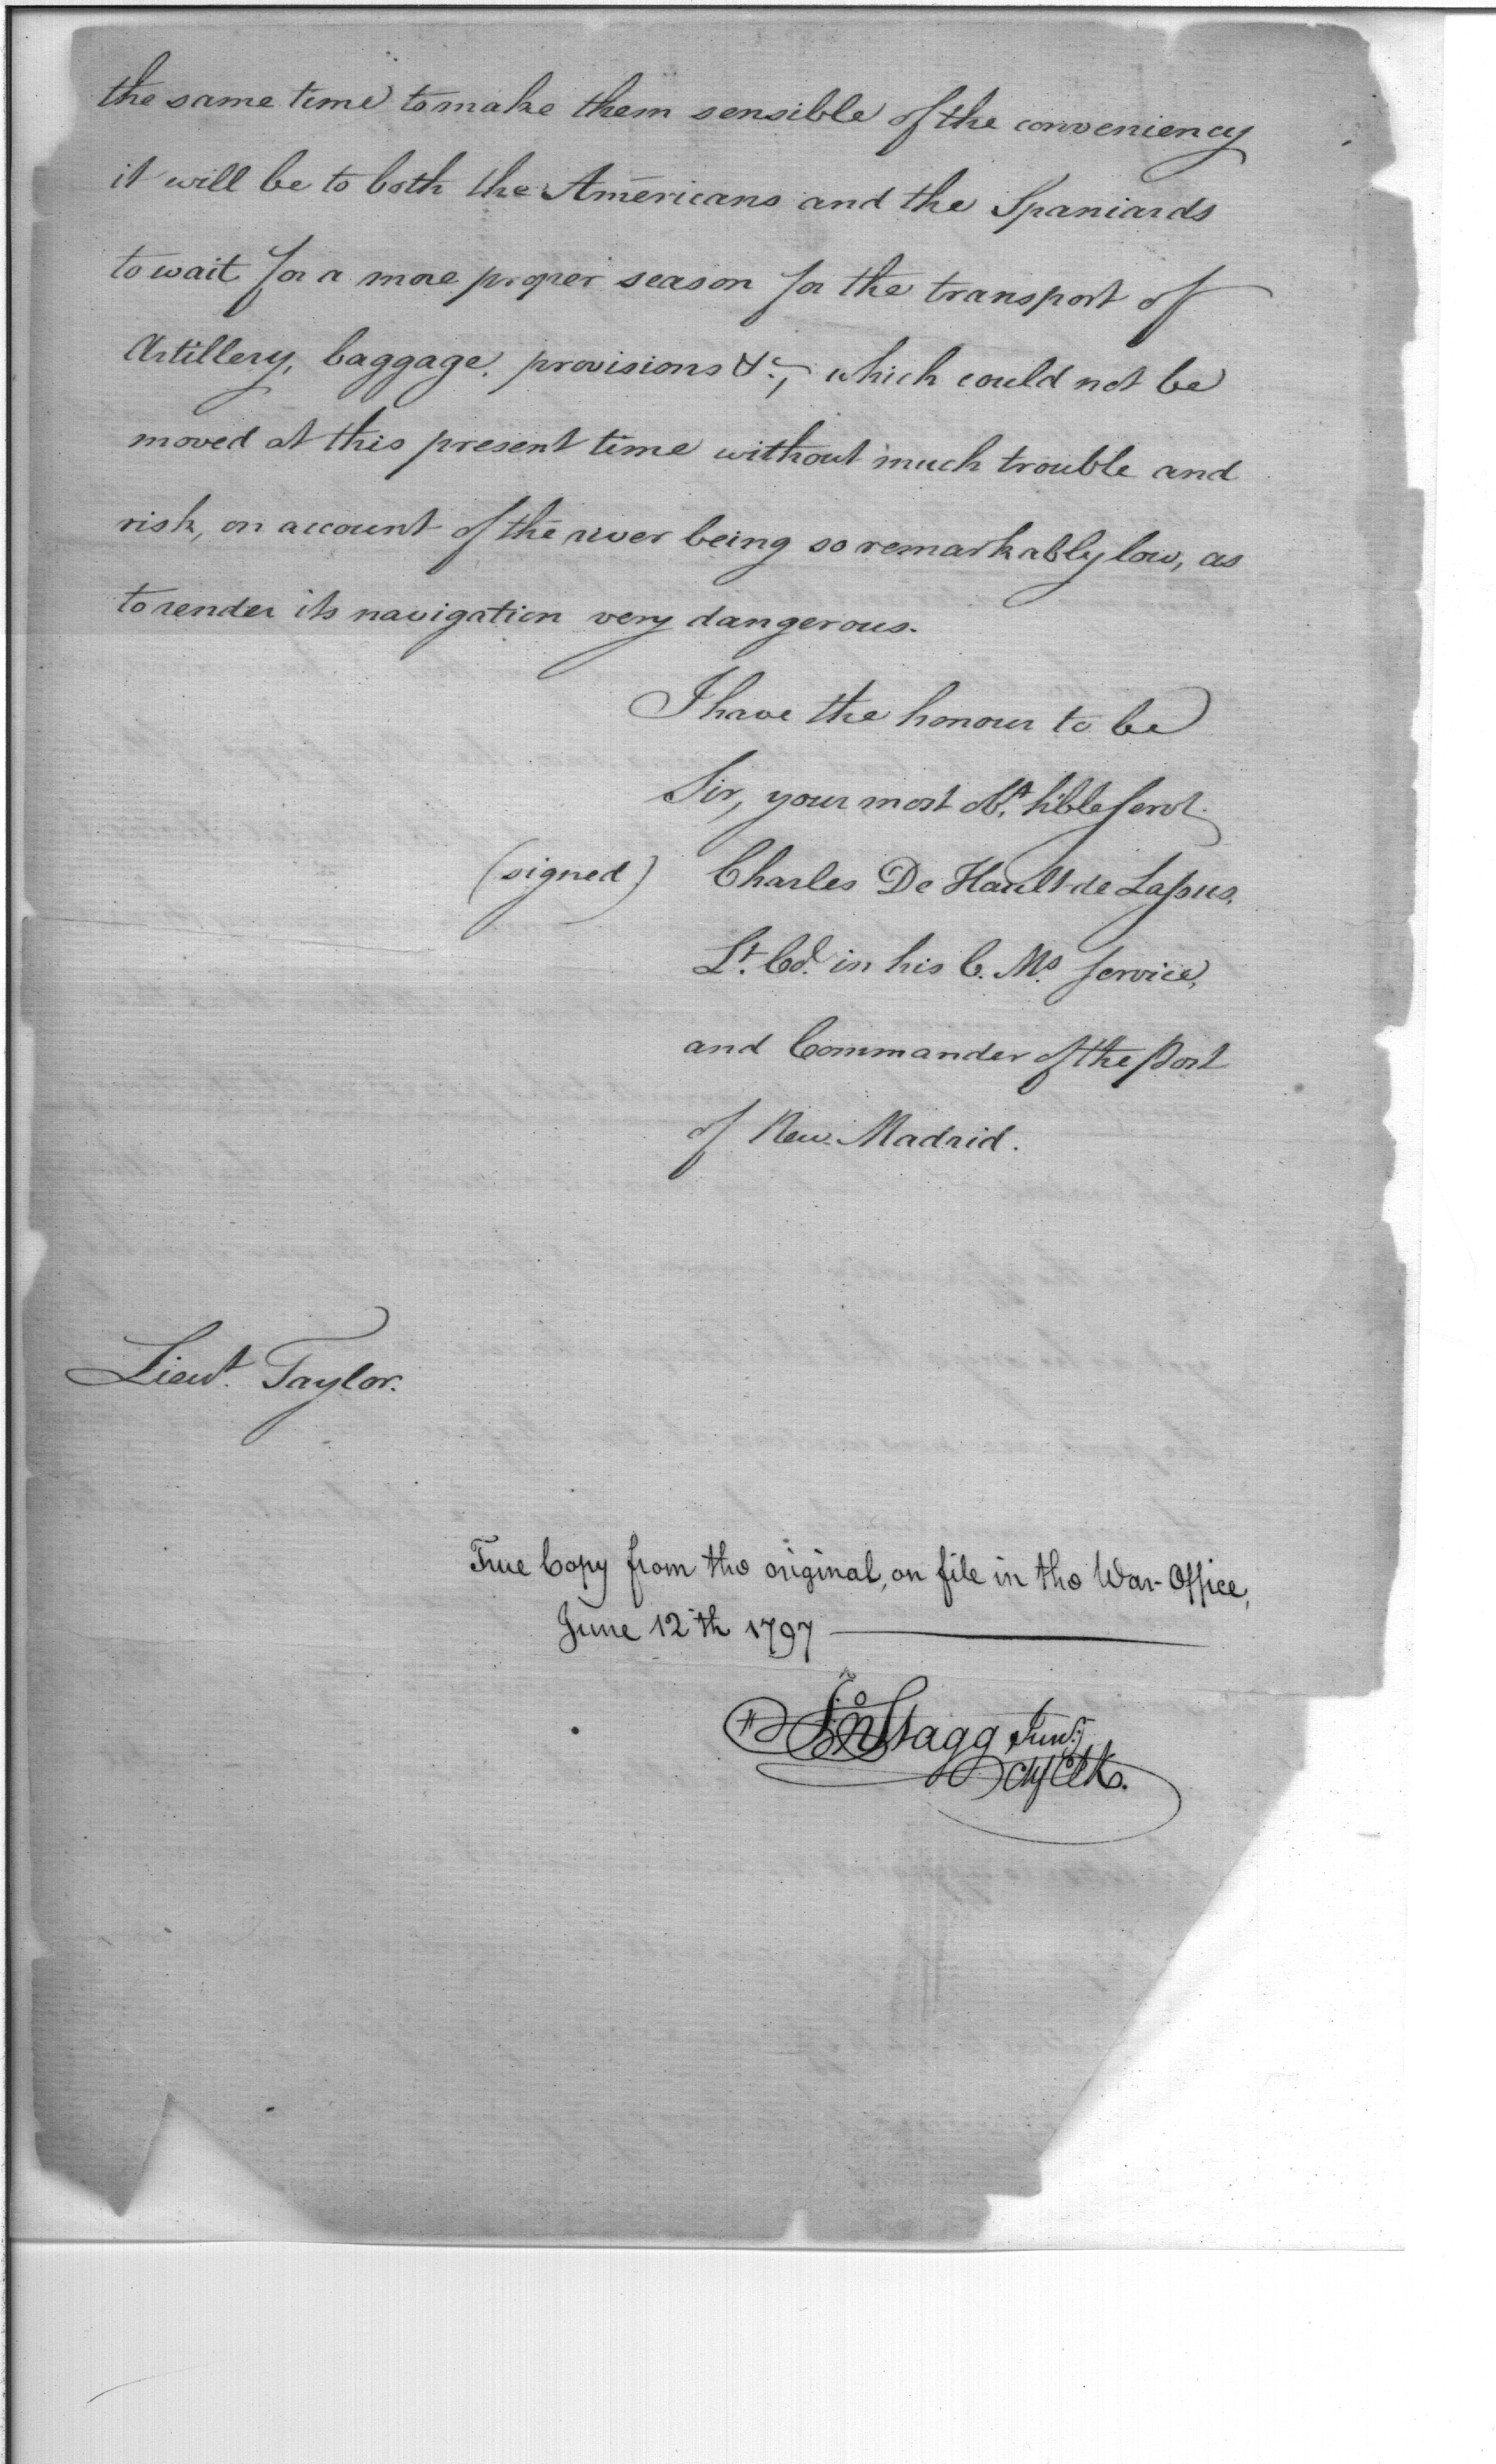 the same time to make them sensible of the conveniency
it will be to both the Americans and the Spaniards
to wait for a more proper season for the transport of
Artillery, baggage, provisions &c., which could not be
moved at this present time without much trouble and
risk, on account of the river being so remarkably low, as
to render its navigation very dangerous.
I have the honour to be
Sir, your most obt. hble servt.
(signed) Charles De Hault de Lassus,
Lt. Col. in his C. Ms. service,
and Commander of the Post
of New Madrid.
Lieut. Taylor.
True Copy from the original, on file in the War-Office,
June 12th 1797
Jno Stagg Junr.
Chf Clk.